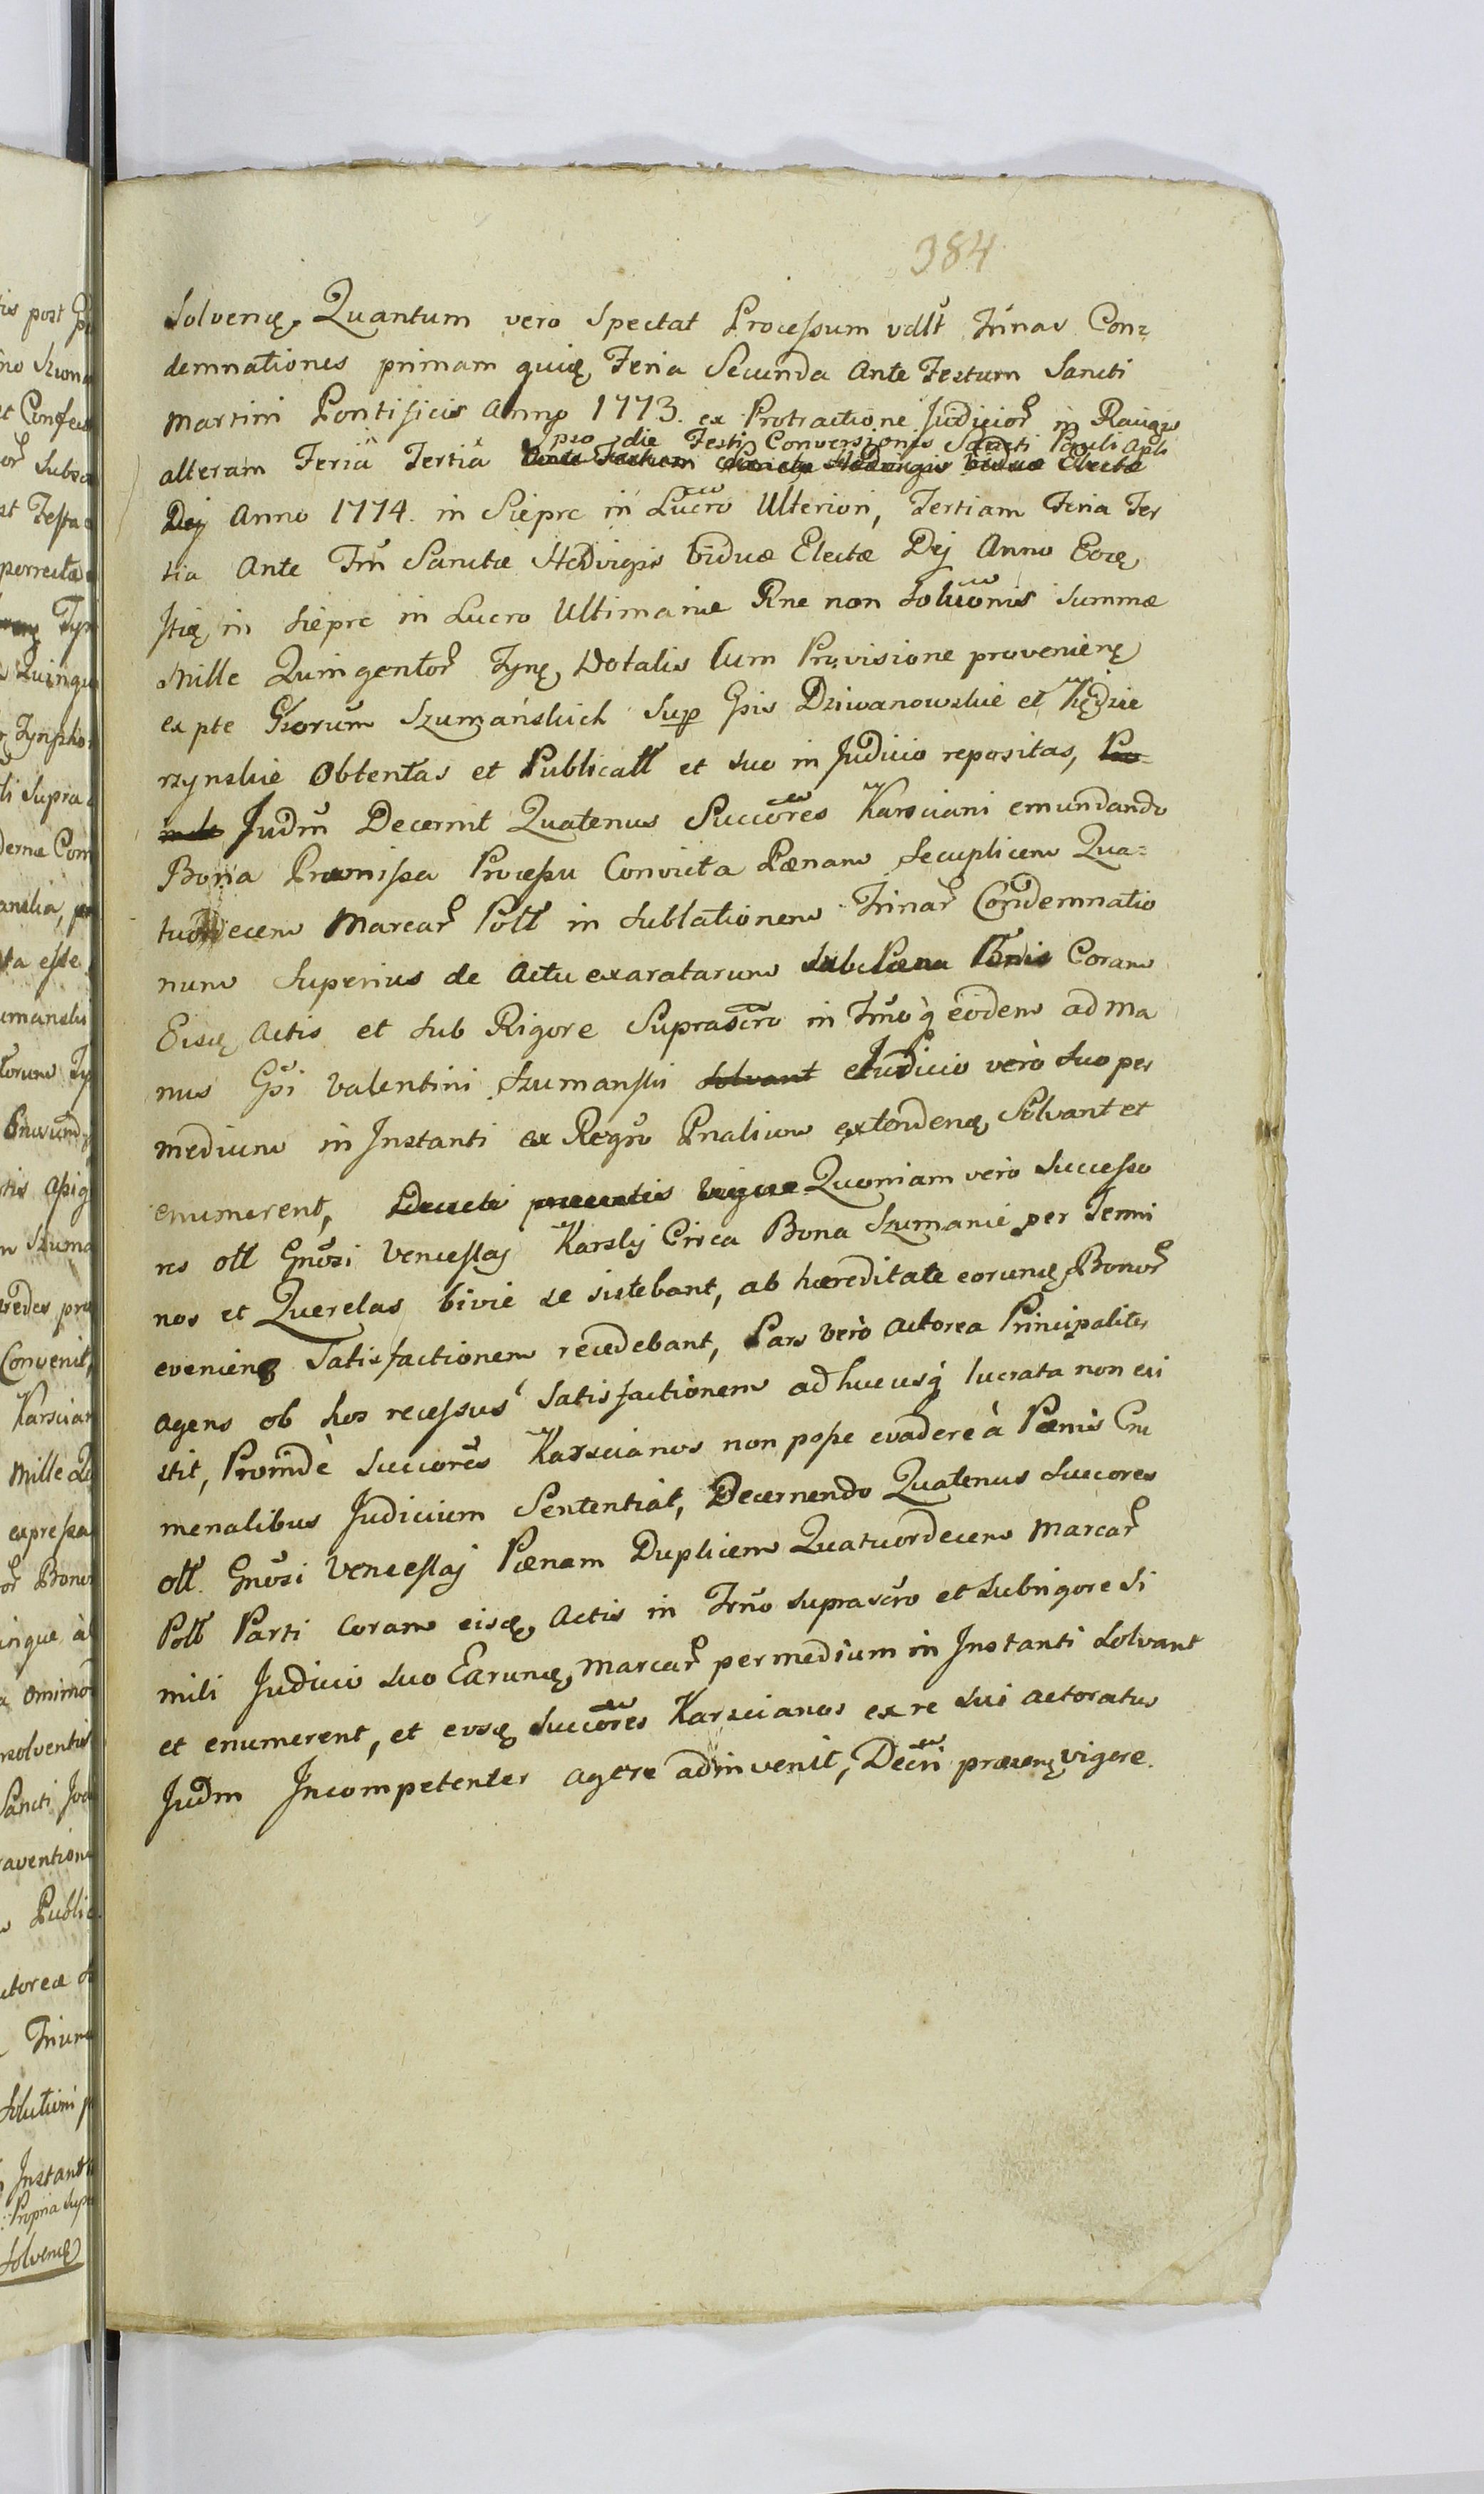 384
solvenę, Quantum vero Spectat Processum vdłt Trinas Con=
demnationes primam quię, Feria Secunda Ante Festum Sancti
Martini Pontificis Anno 1773. ex Protractione Judicior in Raugis
Ipso die Festi Conversionis Sancti Pauli Apli
alteram Feria Tertia Ante Festum Sanctæ Hedvigis viduæ Electæ
Dej Anno 1774. in Sieprc in Lucro Ulteriori, Tertiam Feria Ter
tia Ante Ftm Sanctæ Hedvigis viduæ Electæ Dej Anno Eoę
stię, in Sieprc in Lucro Ultimariæ Rne non Soluonis Summæ
Mille Quingentor Tynę, Dotalis Cum Provisione provenienę
ex pte Gsorum Szumańskich Sup Gsis Dziwanowskie et Kędzie
rzynskie Obtentas et Publicatt et suo in Judicio repositas, Pro=
inde Judm Decernit Quatenus Succores Karsciani emundando
Bona Præmissa Processu Convicta Pænam Decuplicem Qua=
tuordecem Marcar Poll in Sublationem Trinar Condemnatio
num Superius de Actu exaratarum sub Pæna Bnis Coram
Eisdę, Actis et Sub Rigore Suprascro in Trno q eodem ad ma
nus Gsi Valentini Szumanski solvant et Judicio vero Suo per
medium in Instanti ex Regro Pnalium extendenę, Solvant et
enumerent, Decreti præsentis vigore Quoniam vero Successo
res oll Gnosi Venceslaj Karsky Circa Bona Szumanie per Termi
nos et Querelas bivie se sistebant, ab hæreditate eorunę, Bonor
evenienę Satisfactionem recedebant, Pars vero Actorea Principaliter
agens ob hos recessus Satisfactionem adhucusq lucrata non exi
stit, Proinde Succores Karscianos non posse evadere à Pænis Cri
menalibus Judicium Sententiat, Decernendo Quatenus Succores
oll. Gnosi Venceslaj Pænam Duplicem Quatuordecem Marcar
Poll Parti Coram eisdę, Actis in Trno suprascro et Sub rigore Si
mili Judicio suo Earunę, Marcar per medium in Instanti Solvant
et enumerent, et eosdę Succores Karscianos ex re Sui Actoratus
Judm Incompetenter agere adinvenit, Decri præsenę vigore.